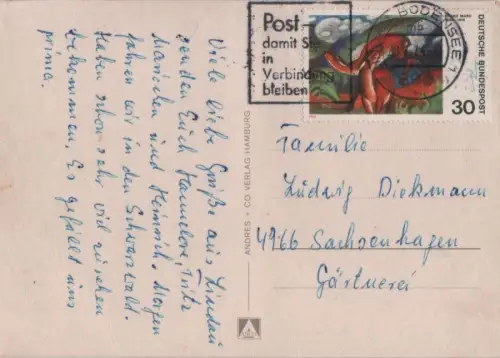 Viele liebe Grüße aus Lindau
senden Euch Hannelore, Fritz
Mariechen und Heinrich. Morgen
fahren wir in den Schwarzwald.
Haben schon sehr viel zu sehen
bekommen. Es gefällt uns
prima.
ANDRES + CO VERLAG HAMBURG
Post
damit Sie
in
Verbindung
bleiben
BODENSEE 1
DEUTSCHE BUNDESPOST
30
Familie
Ludwig Diekmann
4966 Sachsenhagen
Gärtnerei